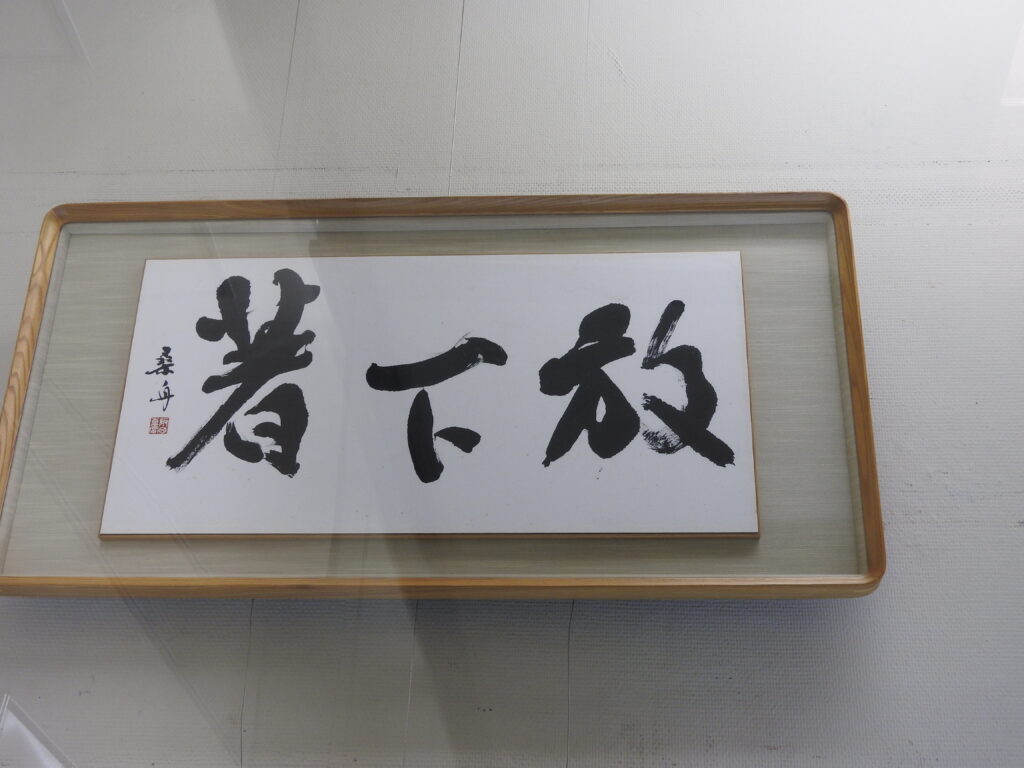 放下著
桑舟